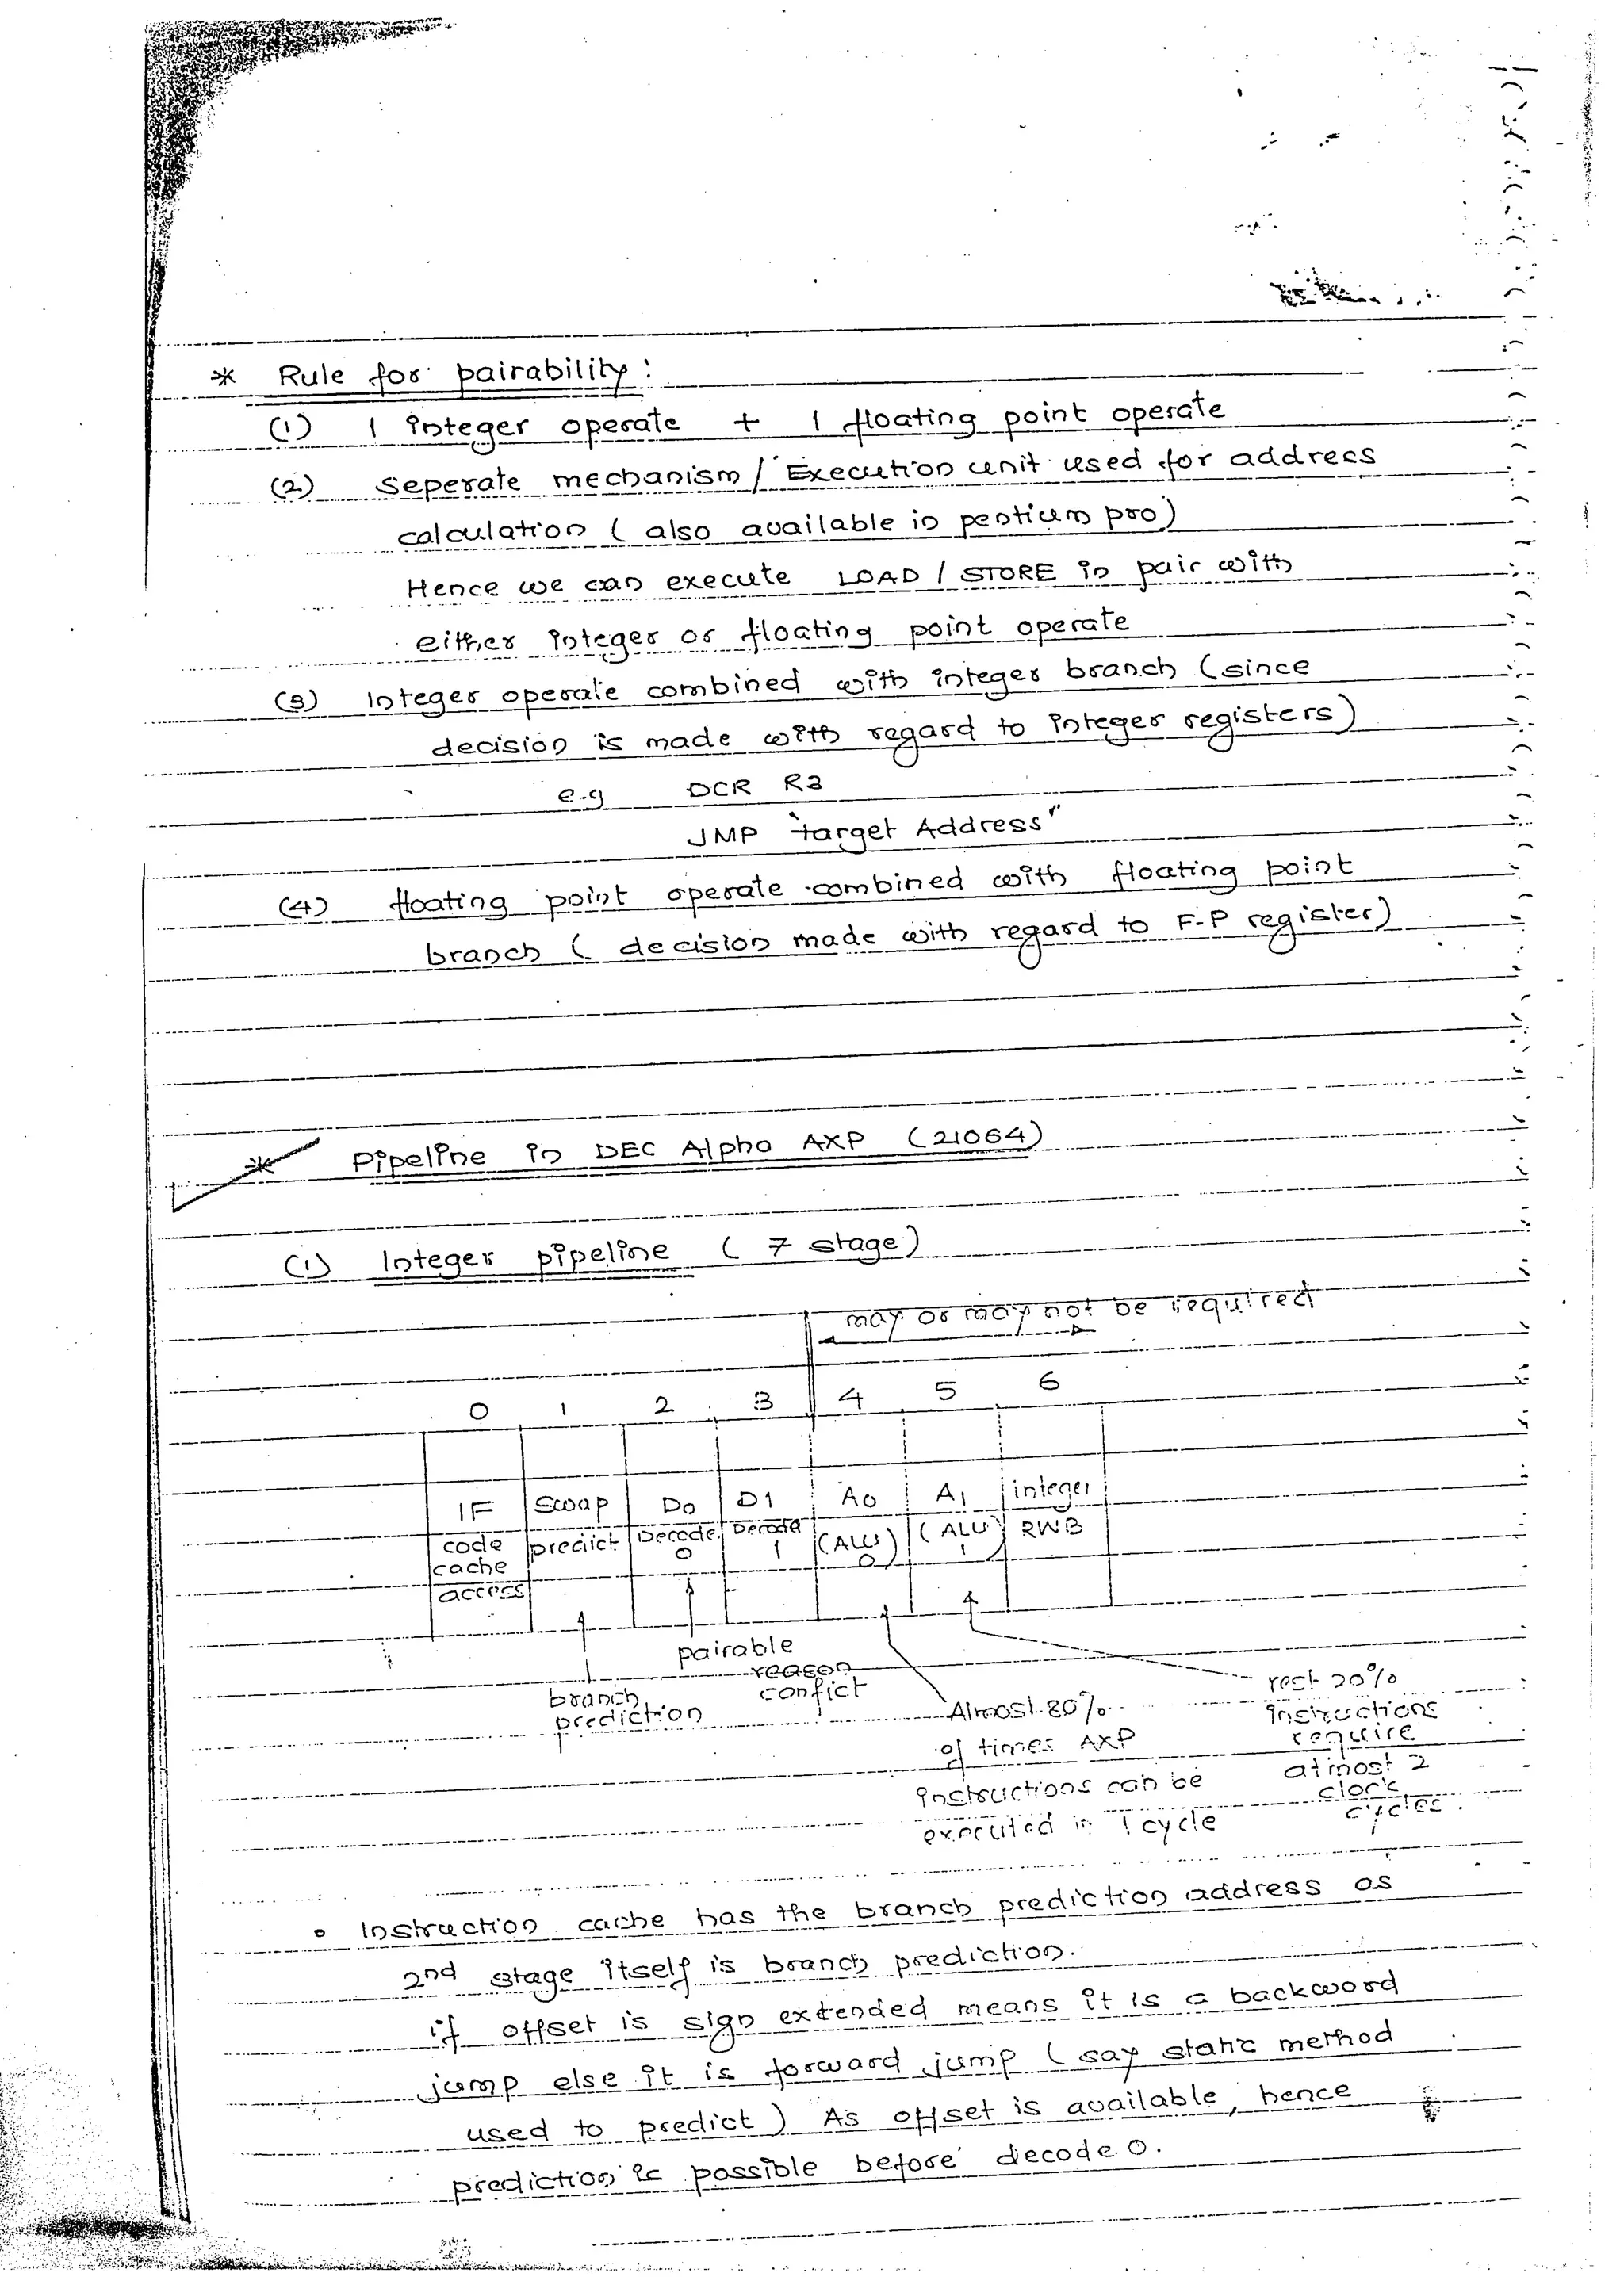 * Rule for pairability :
(1) 1 integer operate + 1 floating point operate
(2) Seperate mechanism / Execution unit used for address
calculation ( also available in pentium pro )
Hence we can execute LOAD / STORE in pair with
either integer or floating point operate
(3) Integer operate combined with integer branch (since
decision is made with regard to integer registers)
e.g DCR R3
JMP "target Address"
(4) floating point operate combined with floating point
branch ( decision made with regard to F-P register)
* Pipeline in DEC Alpha AXP (21064)
(1) Integer pipeline ( 7 stage)
may or may not be required
0 1 2 3 4 5 6
IF Swap D0 D1 A0 A1 integer
code predict Decode Decode (ALU) (ALU) RWB
cache 0 1 0 1
access
pairable
reason
confict
branch
prediction
Almost 80%
of times AXP
instructions can be
executed in 1 cycle
rest 20%
instructions
require
atmost 2
clock
cycles.
Instruction cache has the branch prediction address as
2nd stage itself is branch prediction.
if offset is sign extended means it is a backword
jump else it is forward jump ( say static method
used to predict ) As offset is available, hence
prediction is possible before decode 0.